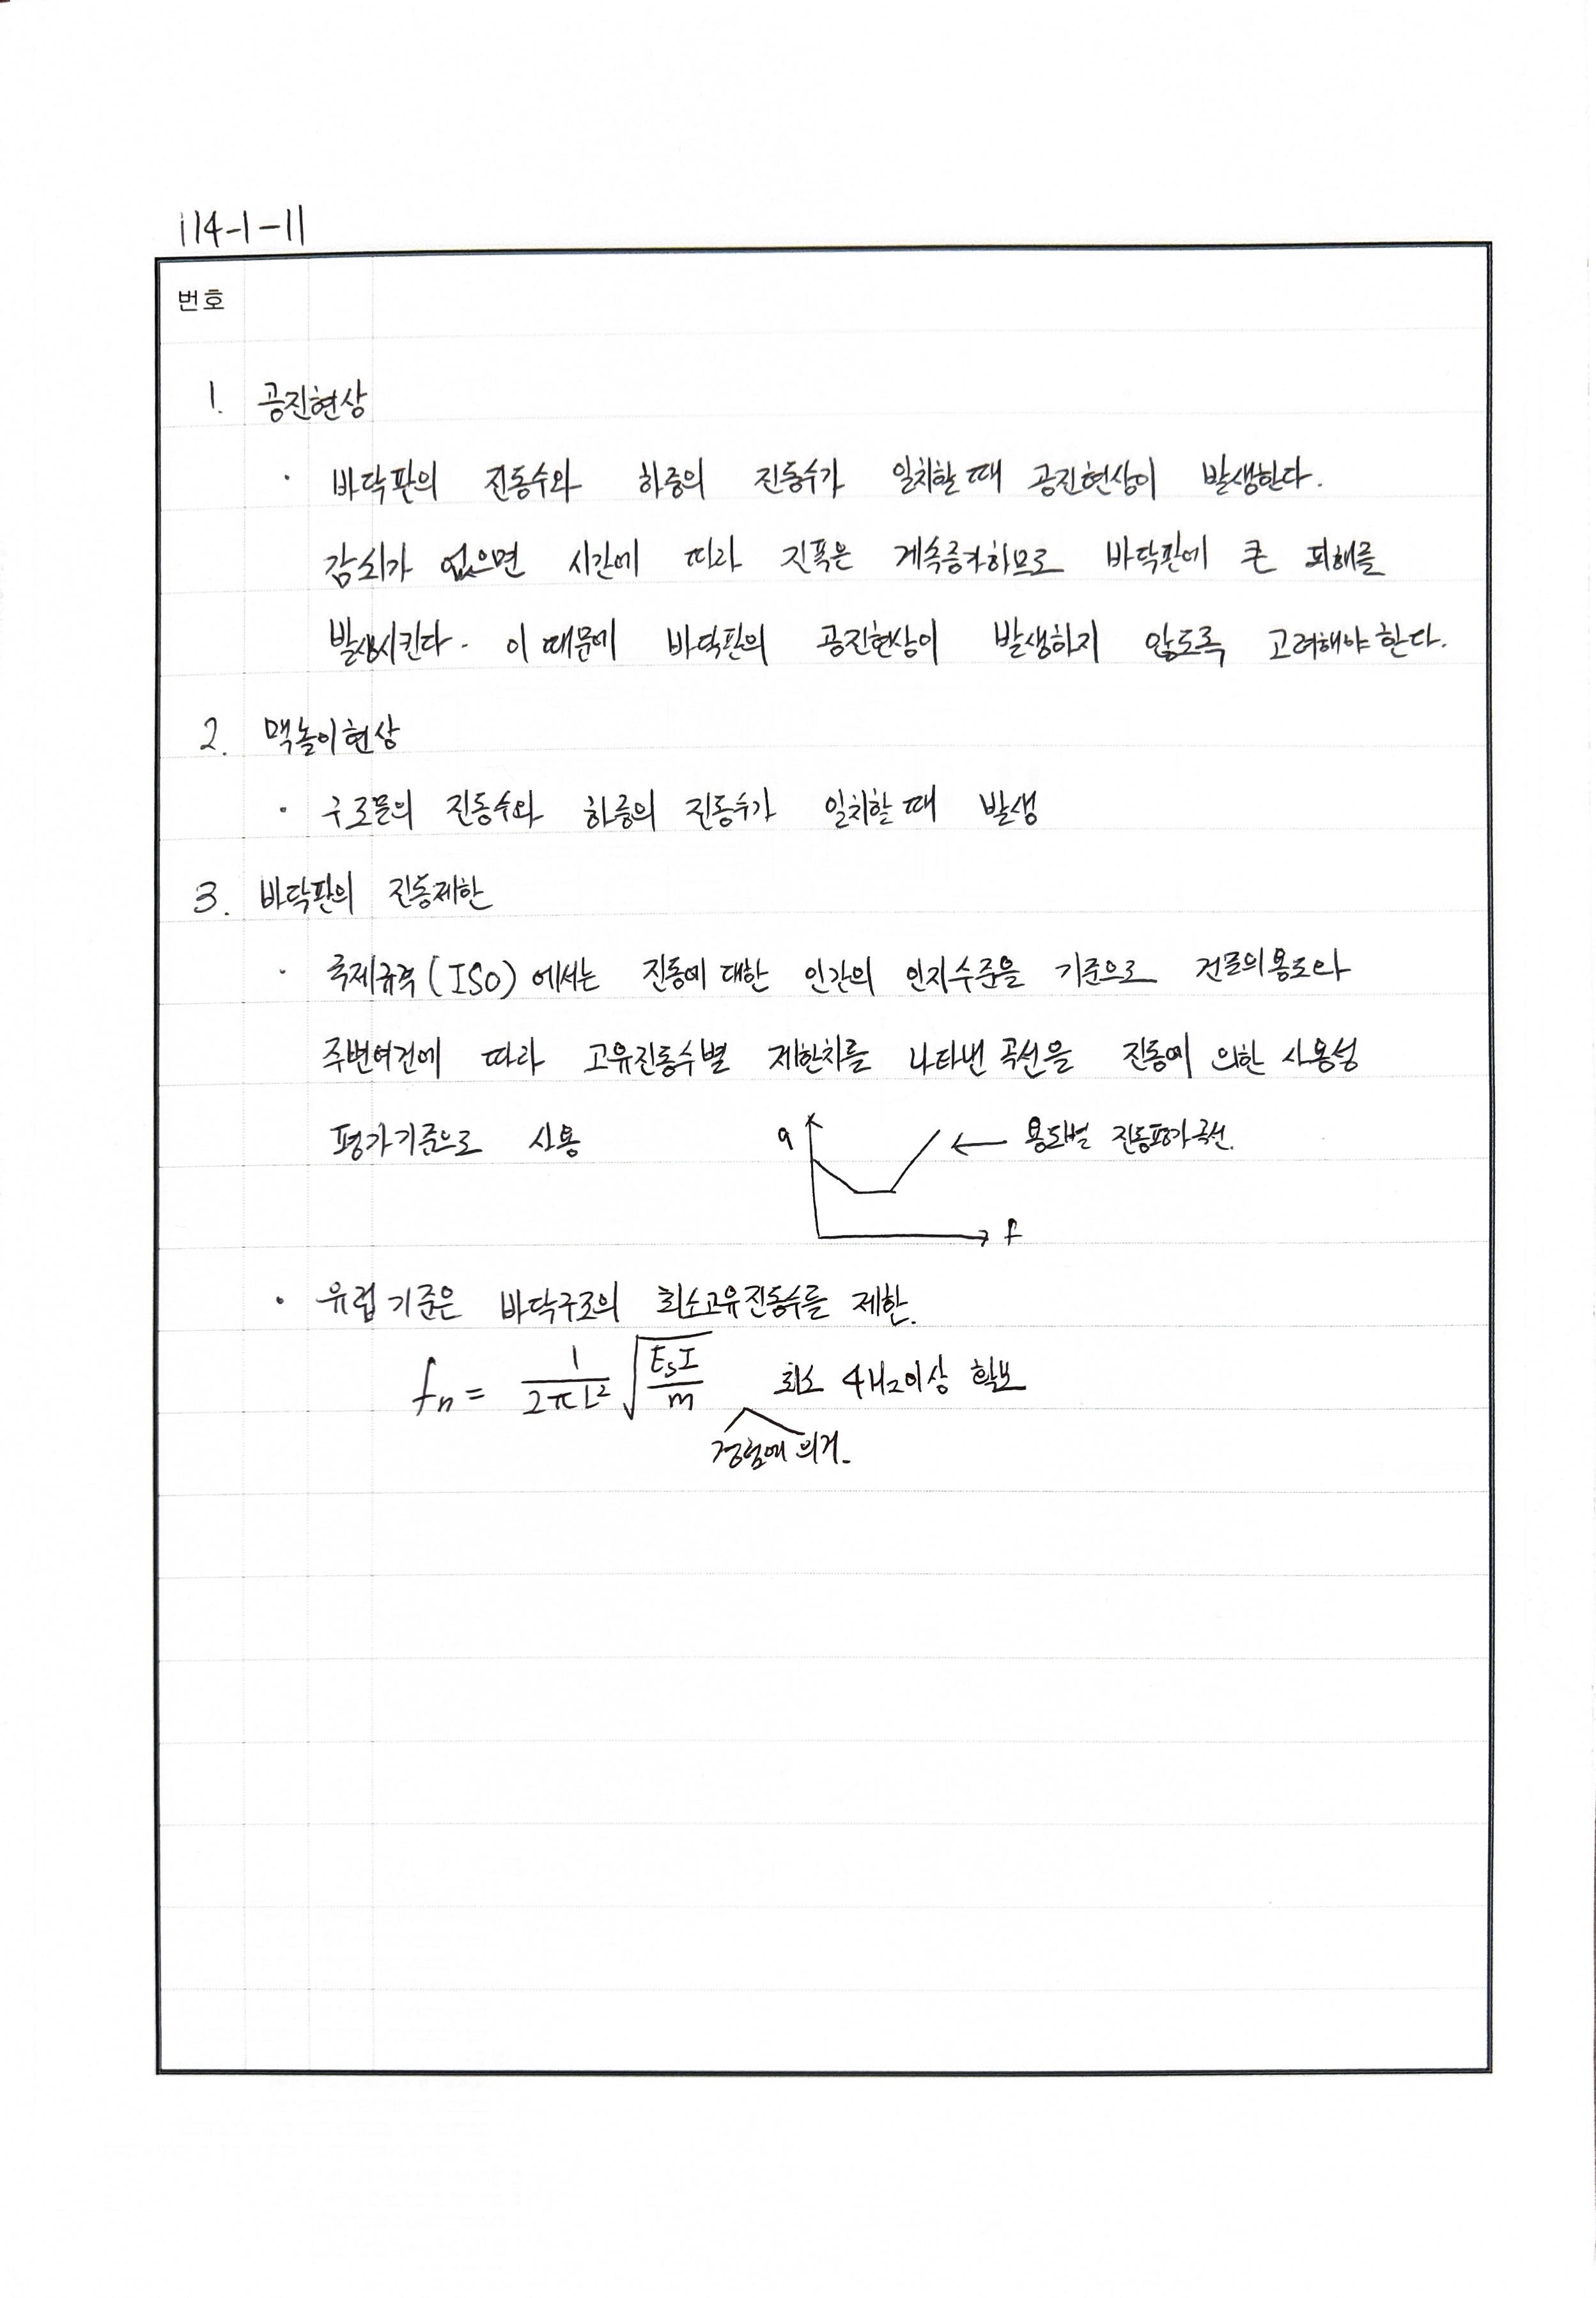 114-1-11
번호
1. 공진현상
· 바닥판의 진동수와 하중의 진동수가 일치할 때 공진현상이 발생한다.
감쇠가 없으면 시간에 따라 진폭은 계속증가하므로 바닥판에 큰 피해를
발생시킨다. 이 때문에 바닥판의 공진현상이 발생하지 않도록 고려해야 한다.
2. 맥놀이현상
· 구조물의 진동수와 하중의 진동수가 일치할 때 발생
3. 바닥판의 진동제한
· 국제규격(ISO)에서는 진동에 대한 인간의 인지수준을 기준으로 건물의 용도와
주변여건에 따라 고유진동수별 제한치를 나타낸 곡선을 진동에 의한 사용성
평가기준으로 사용
a ← 용도별 진동평가곡선.
f
· 유럽기준은 바닥구조의 최소고유진동수를 제한.
fn = 1/(2πL²) √(EsI/m) 최소 4Hz이상 확보
경험에 의거.